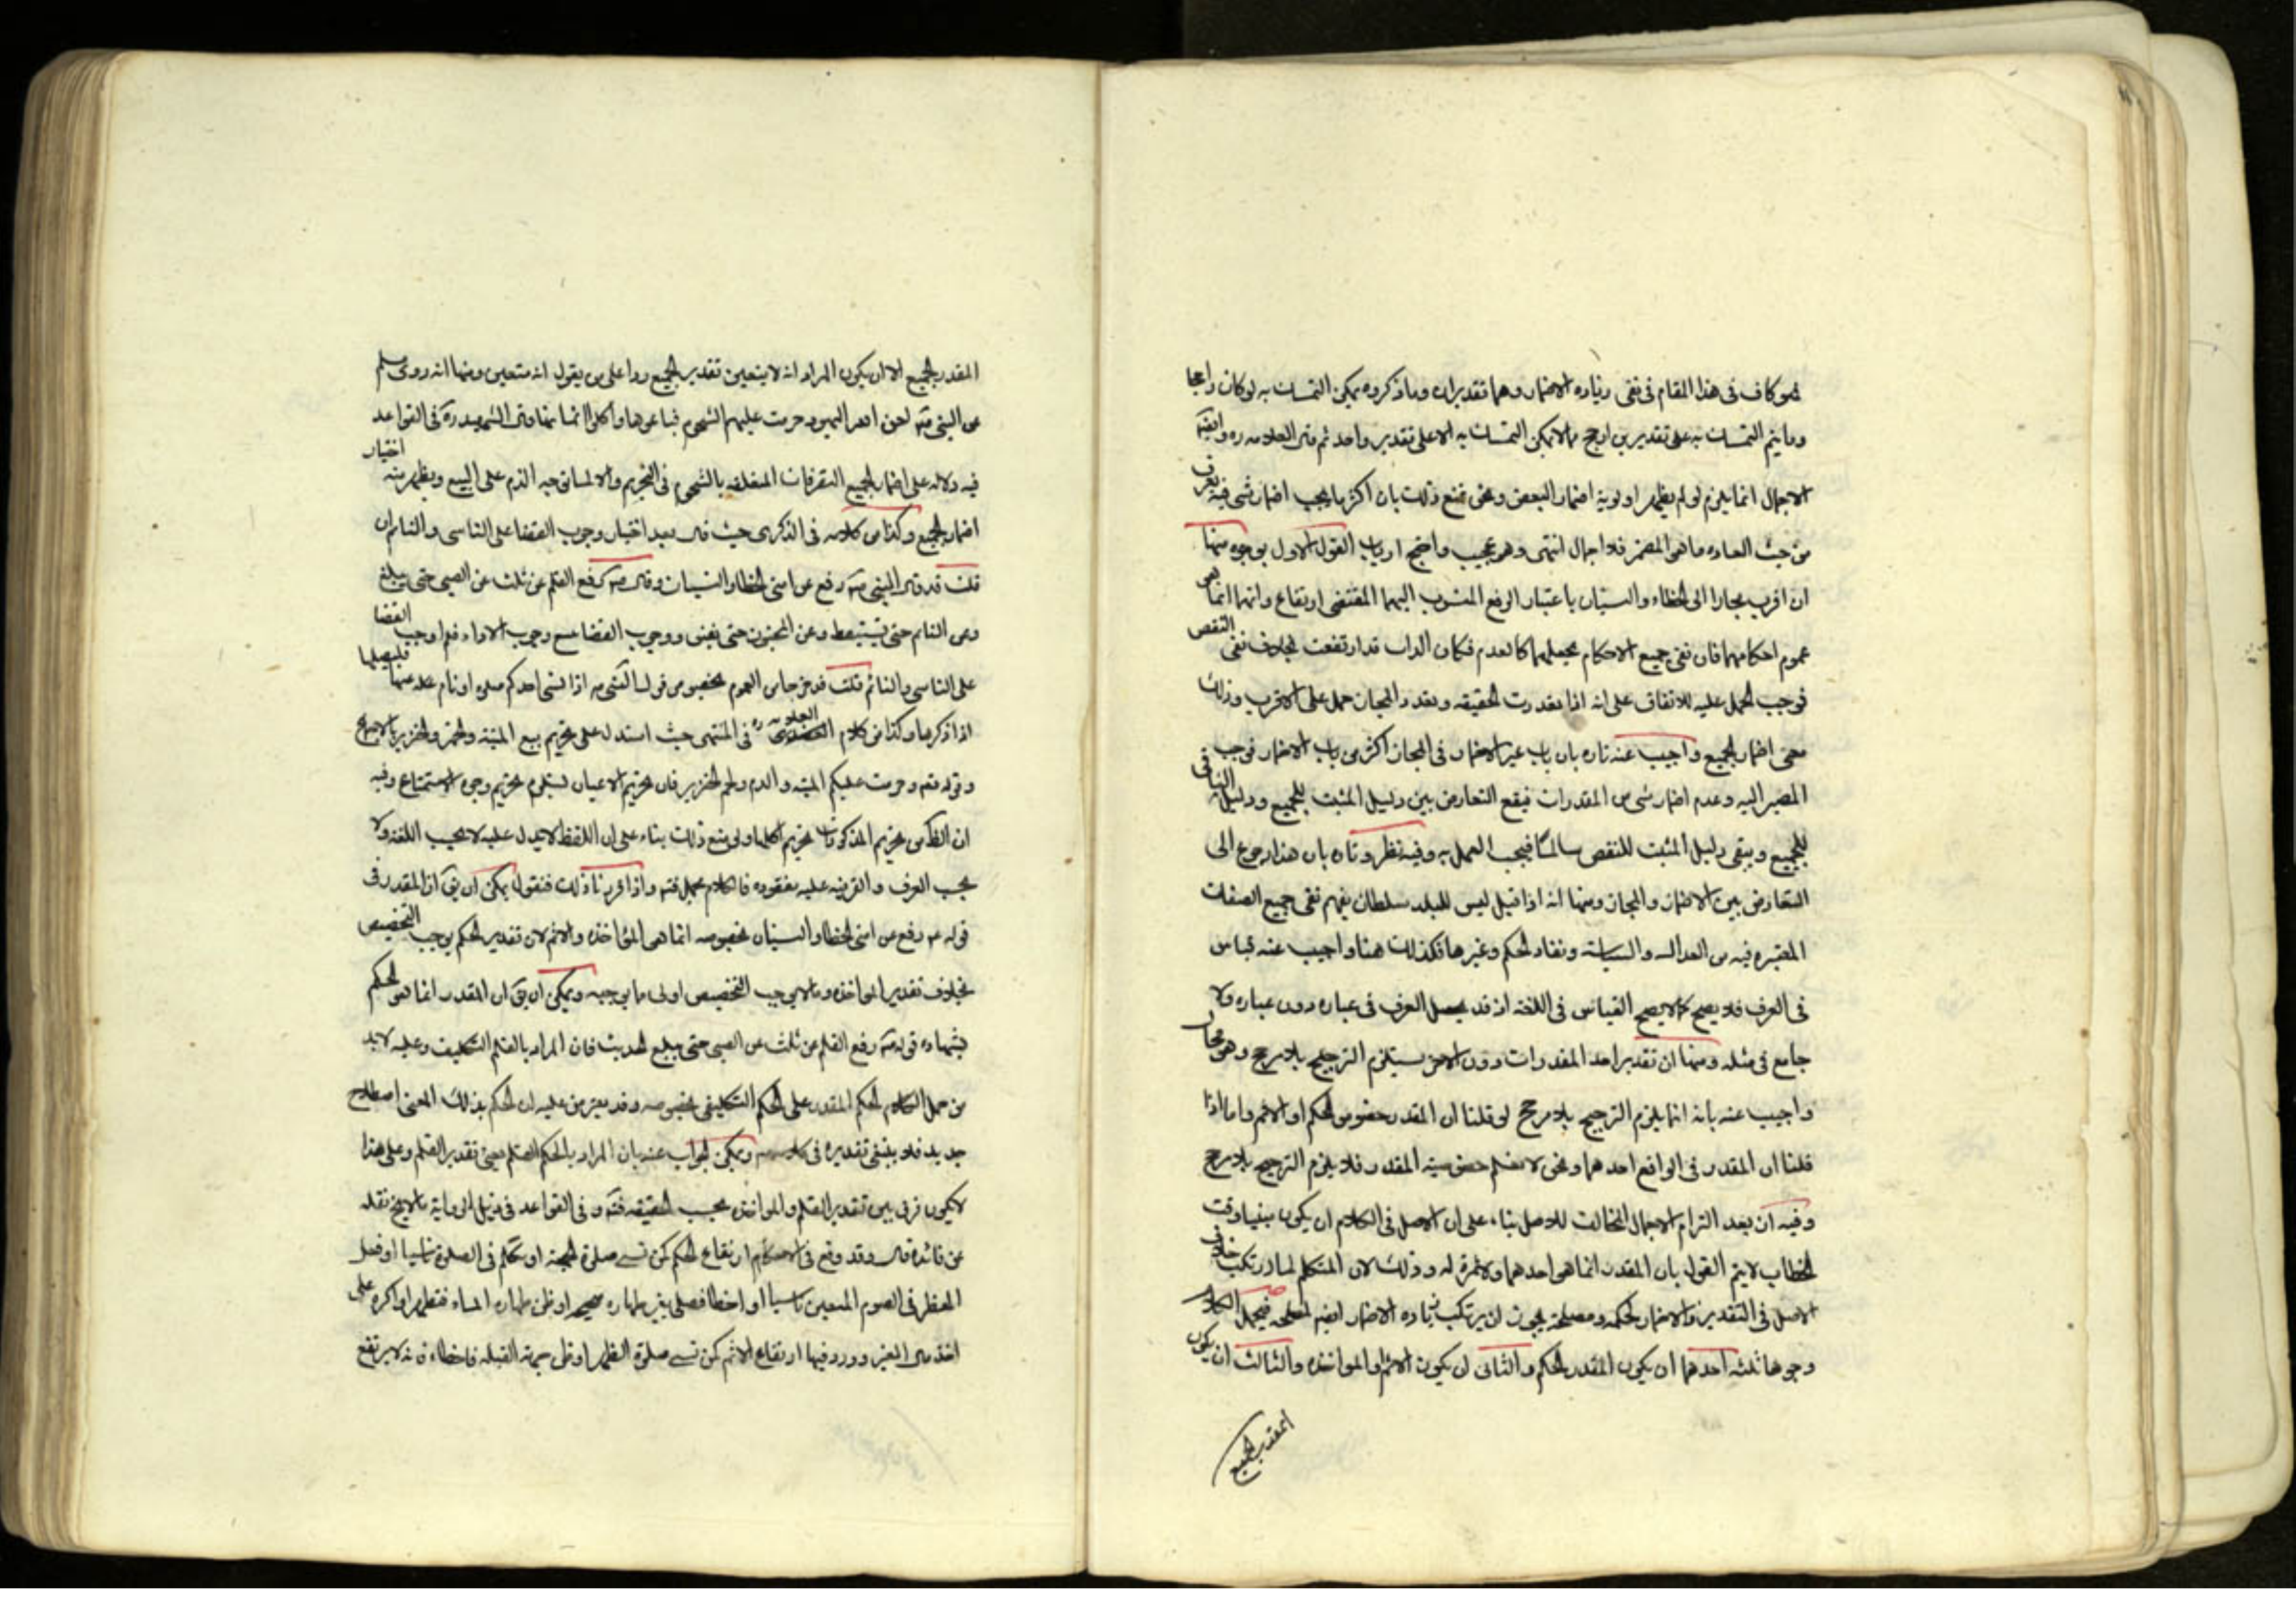 فهو كاف فى هذا المقام فى نفى زياده الاضمار وهما تقديران وماذكروه يمكن التمسك به لو كان راجحا
وما يتم التمسك به على تقديرين ارجح مما لا يمكن التمسك به الا على تقدير واحد ثم قال العلامه ره وايضا
الاجمال انما يلزم لو لم يظهر اولوية اضمار البعض ونحن نمنع ذلك بان اكثر ما يجب اضمار شى فيه يعرف
من حيث العاده ما هو المضمر فلا اجمال انتهى وهو عجيب واحتج ارباب القول الاول بوجوه منها
ان اقرب مجازا الى الخطاء والنسيان باعتبار الرفع المنسوب اليهما المقتضى ارتفاع ذاتهما انما هو
عموم احكامهما فان نفى جميع الاحكام يجعلهما كالعدم فكان الذات قد ارتفعت بخلاف نفى البعض
فوجب الحمل عليه للاتفاق على انه اذا تعذرت الحقيقه وتعدد المجاز حمل على الاقرب وذلك
معنى اضمار الجميع واجيب عنه تاره بان باب غير الاضمار فى المجاز اكثر من باب الاضمار فوجب
المصير اليه وعدم اضمار شى من المقدرات فيقع التعارض بين دليل المثبت للجميع ودليل النافى
للجميع ويبقى دليل المثبت للبعض سالما فيجب العمل به وفيه نظر وتاره بان هذا رجوع الى
التعارض بين الاضمار والمجاز ومنها انه اذا قيل ليس للبلد سلطان يفهم نفى جميع الصفات
المعتبره فيه من العداله والسياسة ونفاذ الحكم وغيرها فكذلك هنا واجيب عنه قياس
فى العرف فلا يصح كما لا يصح القياس فى اللغه اذ قد يحصل العرف فى عباره دون عباره ولا
جامع فى مثله ومنها ان تقدير احد المقدرات دون الاخر يستلزم الترجيح بلا مرجح وهو محال
واجيب عنه بانه انما يلزم الترجيح بلا مرجح لو قلنا ان المقدر خصوص الحكم او الاثم واما اذا
قلنا ان المقدر فى الواقع احدهما ونحن لا نعلم خصوصية المقدر فلا يلزم الترجيح بلا مرجح
وفيه ان بعد التزام الاجمال المخالف للاصل بناء على ان الاصل فى الكلام ان يكون مبنيا وقت
الخطاب لا يتم القول بان المقدر انما هو احدهما ولا ثمرة له وذلك لان المتكلم لما ارتكب خلاف
الاصل فى التقدير والاضمار لحكمه ومصلحة يجوز ان يرتكب زياده الاضمار ايضا لمصلحه فيحمل الكلام
وجوها ثلثه احدها ان يكون المقدر الحكم والثانى ان يكون الاثم او المواخذه والثالث ان يكون
المقدر الجميع
المقدر الجميع الا ان يكون المراد انه لا يتعين تقدير الجميع ردا على من يقول انه متعين ومنها انه روى مسلم
عن النبى ص لعن الله اليهود حرمت عليهم الشحوم فباعوها واكلوا اثمانها قال الشهيد ره فى القواعد
فيه دلاله على اضمار الجميع التصرفات المتعلقه بالشحوم فى التحريم والا لما توجه الذم على البيع ويظهر منه اختيار
اضمار الجميع وكذا من كلامه فى الذكرى حيث قال بعد اختيار وجوب القضا على الناسى والنائم ان
قلت قد قال النبى ص رفع عن امتى الخطا والنسيان وقال ص رفع القلم عن ثلث عن الصبى حتى يبلغ
وعن النائم حتى يستيقظ وعن المجنون حتى يفيق ووجوب القضا مع وجوب الاداء فلم اوجب القضا
على الناسى والنائم قلت قد خرجا من العموم بخصوص قول النبى ص اذا نسى احدكم صلوه او نام عنها فليصلها
اذا ذكرها وكذا من كلام العلامه ره فى المنتهى حيث استدل على تحريم بيع الميته والخمر والخنزير بالاجماع
وقوله تعم وحرمت عليكم الميته والدم ولحم الخنزير فان تحريم الاعيان يستلزم تحريم وجوه الاستمتاع وفيه
ان الظاهر من تحريم المذكورات تحريم اكلها ولو منع ذلك بناء على ان اللفظ لا يدل عليه لا بحسب اللغه ولا
بحسب العرف والقرينه عليه مفقوده فالكلام مجمل فتم واذا قررنا ذلك فنقول يمكن ان يق ان المقدر فى
قوله ع رفع عن امتى الخطا والنسيان بخصوصه انما هى المؤاخذه والاثم لان تقدير الحكم يوجب التخصيص
بخلاف تقدير المواخذه وما لا يوجب التخصيص اولى مما يوجبه ويمكن ان يق ان المقدر انما هو الحكم
بشهاده قوله ص رفع القلم عن ثلث عن الصبى حتى يبلغ الحديث فان المراد بالقلم التكليف وعليه لابد
من حمل الكلام الحكم المقدر على الحكم التكليفى بخصوصه وقد يعترض عليه ان الحكم بذلك المعنى اصطلاح
جديد فلا ينبغى تقديره فى كلامه ويمكن الجواب عنه بان المراد بالحكم القلم يعنى تقدير القلم وعلى هذا
لا يكون فرق بين تقدير القلم والمواخذه بحسب الحقيقه فتم و فى القواعد فى ذيل الروايه ما لا يخ نقله
عن فائده قال وقد وقع فى الاحكام ارتفاع الحكم كمن نسى صلوة الجمعه او تكلم فى الصلوة ناسيا او فعل
المفطر فى الصوم المتعين ناسيا او اخطا فصلى بغير طهاره صحيحه او ظن طهاره الماء فتطهر او اكره على
اخذ مال الغير وورد فيها ارتفاع الاثم كمن نسى صلوة الظهر او ظن جهة القبله فاخطاء فانه لا يرتفع